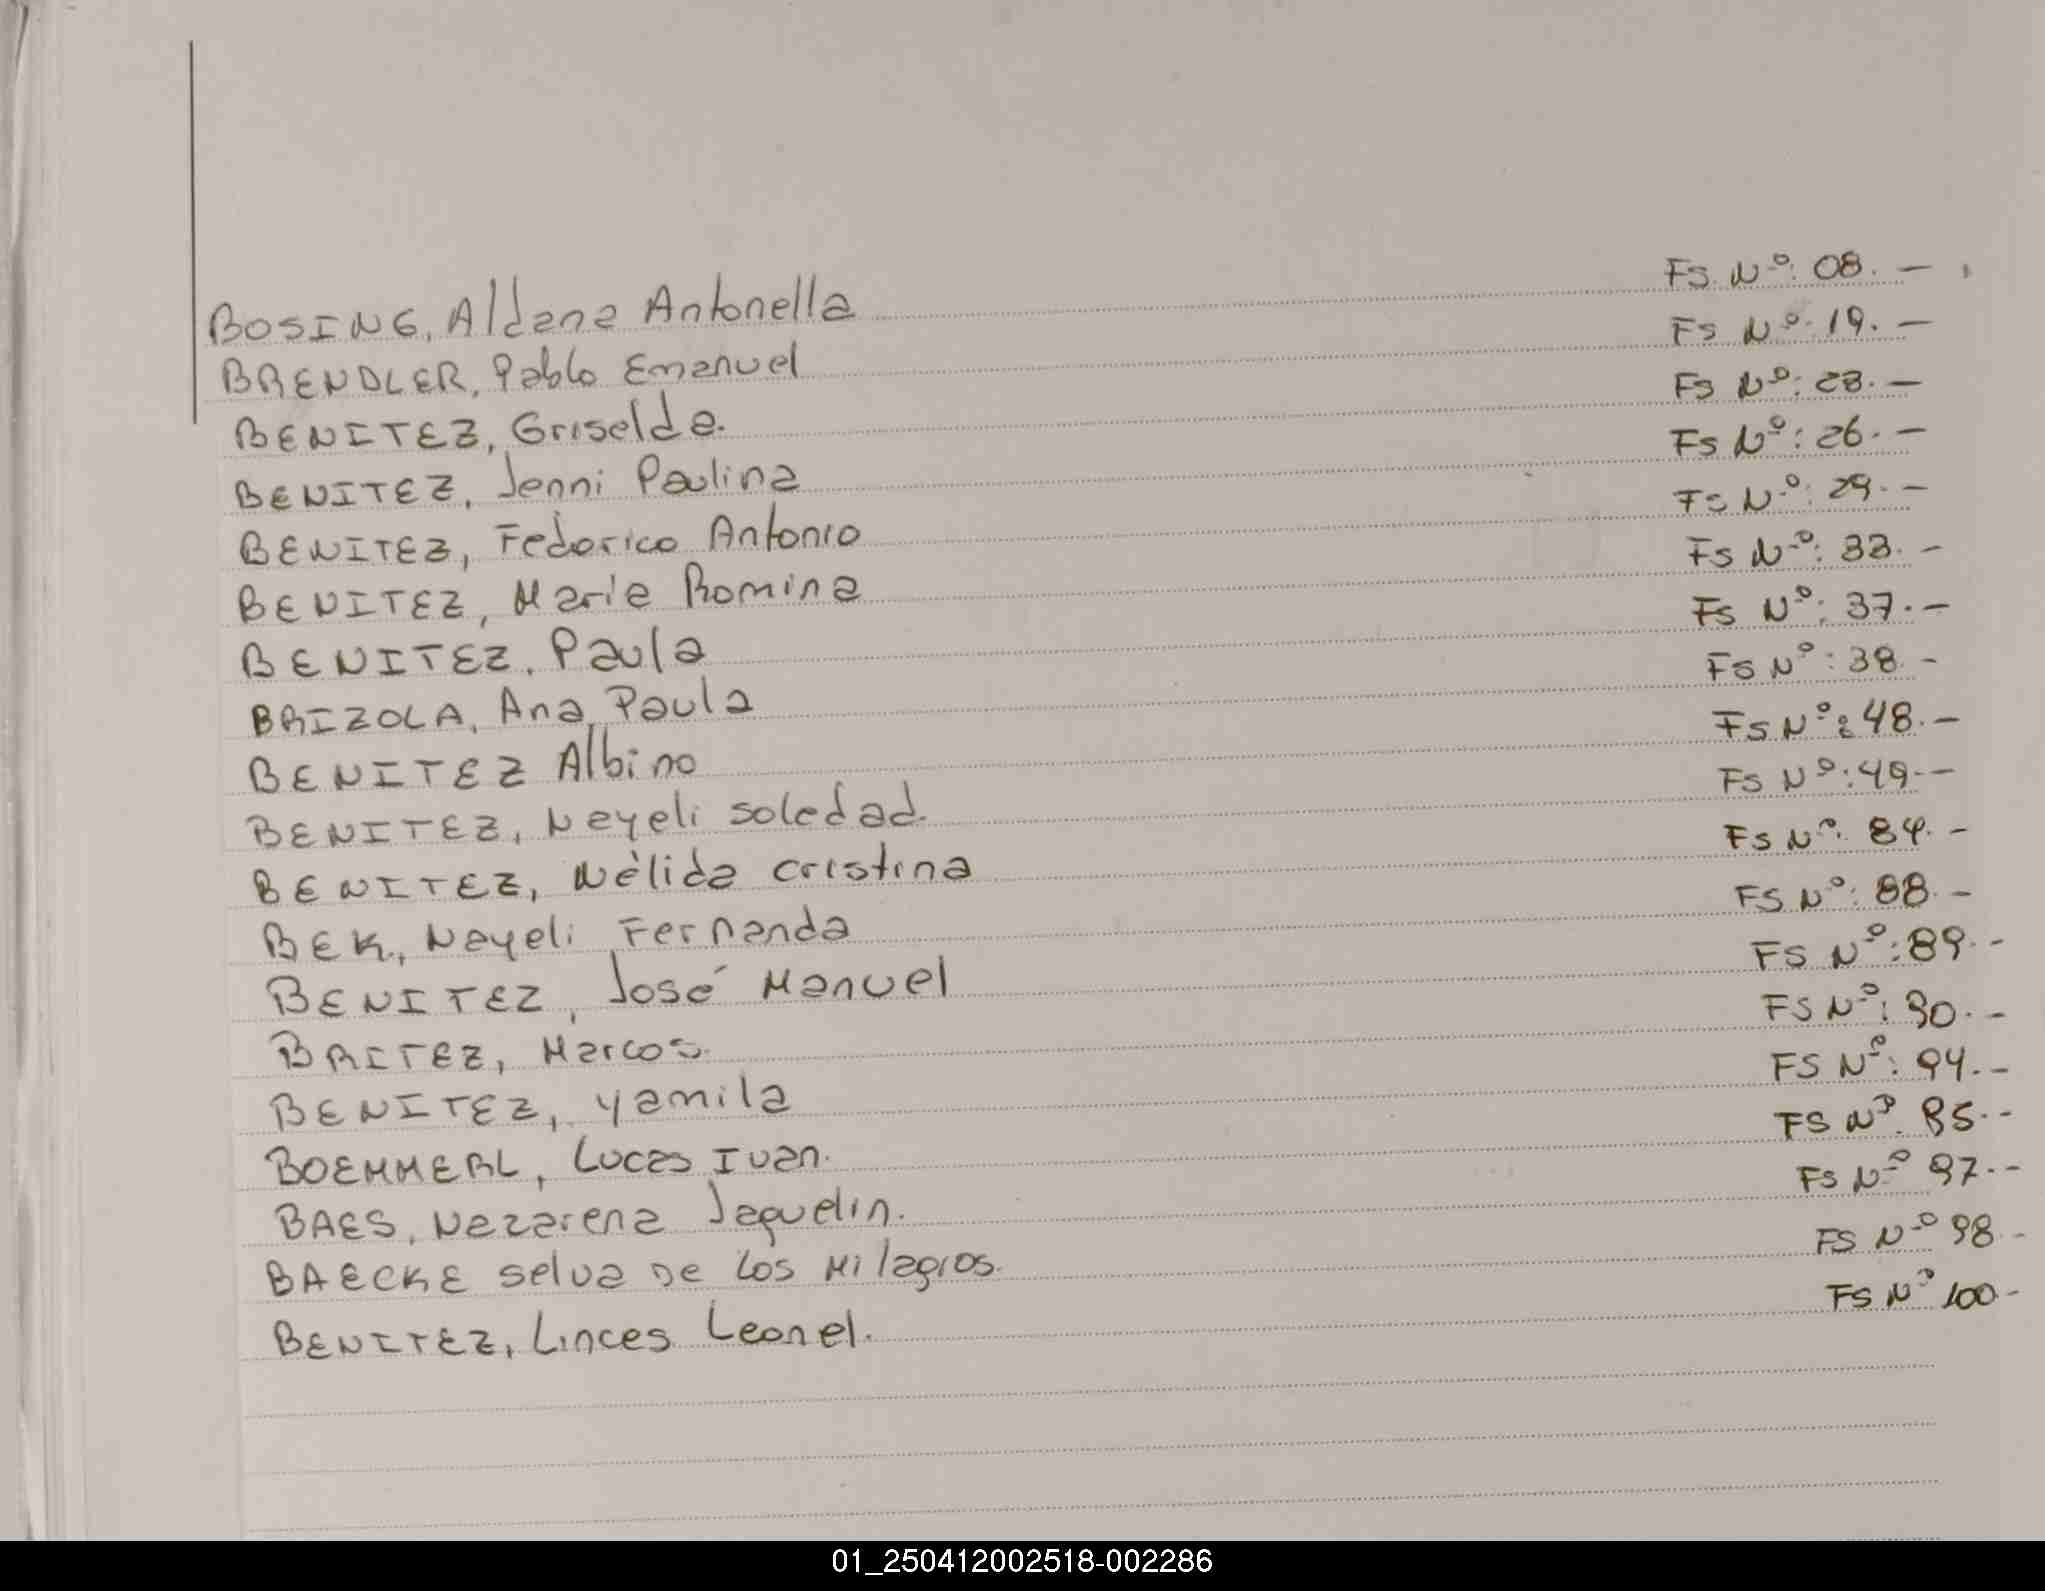 BOSING, Aldana Antonella Fs Nº: 08. –
BRENDLER, Pablo Emanuel Fs Nº: 19. –
BENITEZ, Griselda. Fs Nº: 23. –
BENITEZ, Jenni Paulina Fs Nº: 26. –
BENITEZ, Federico Antonio Fs Nº: 29. –
BENITEZ, Maria Romina Fs Nº: 33. –
BENITEZ, Paula Fs Nº: 37. –
BRIZOLA, Ana Paula Fs Nº: 38 –
BENITEZ Albino Fs Nº: 48. –
BENITEZ, Nayeli Soledad. Fs Nº: 49. –
BENITEZ, Nèlida Cristina Fs Nº: 84. –
BEK, Nayeli Fernanda FS Nº: 88. –
BENITEZ, José Manuel FS Nº: 89. –
BRITEZ, Marcos. FS Nº: 90. –
BENITEZ, Yamila FS Nº: 94. –
BOEMMERL, Lucas Ivan. FS Nº. 95. –
BAES, Nazarena Jaquelin. Fs Nº 97. –
BAECKE Selva De Los Milagros. FS Nº 98 –
BENITEZ, Linces Leonel. FS Nº 100 –
01_250412002518-002286